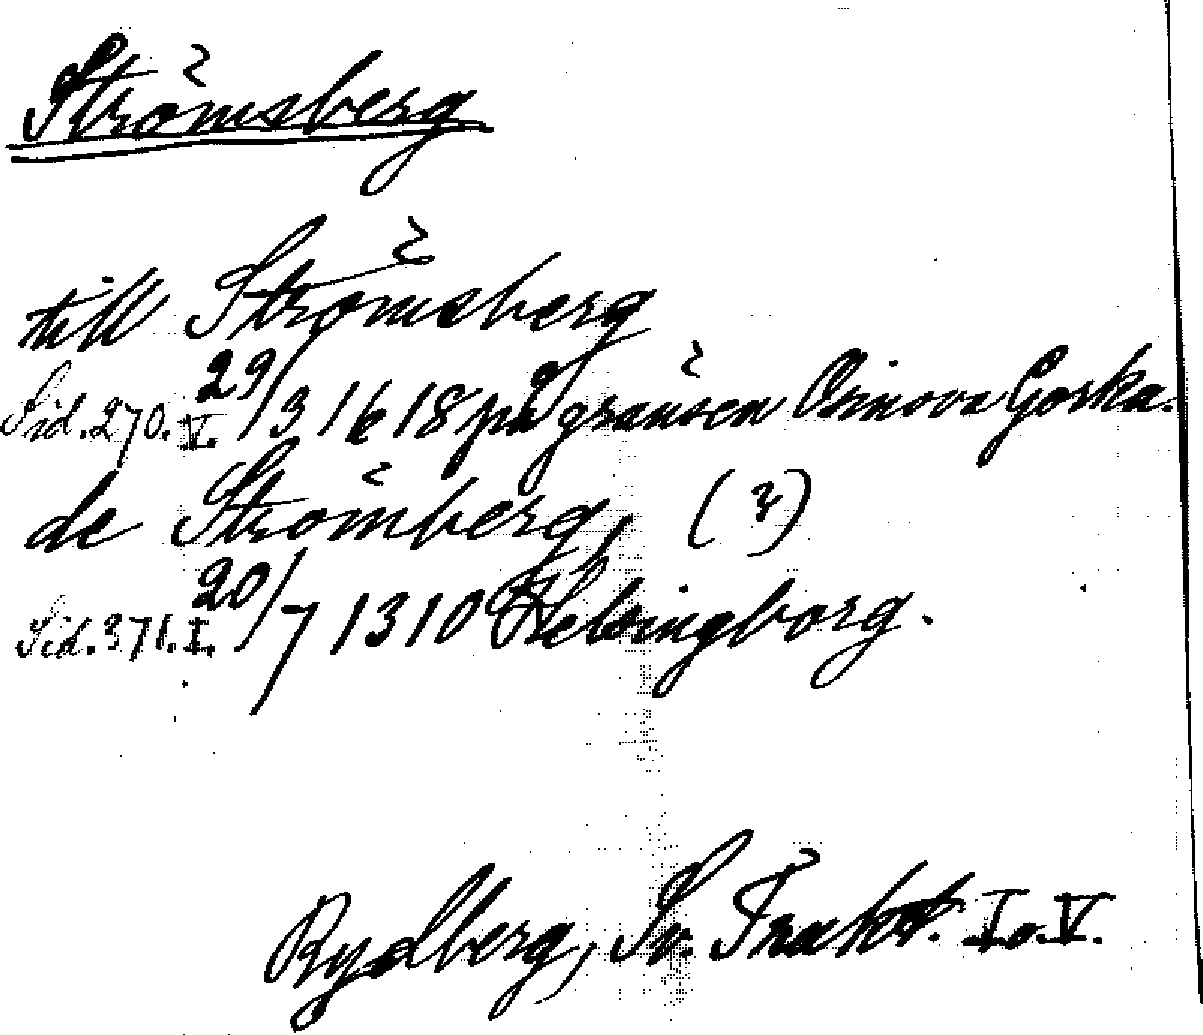 Strömsberg
till Strömsberg
Sid. 270. V. 29/3 1618 på gränsen Osinova Gorka.
de Strömberg, (?)
Sid. 371. I. 20/7 1310 Helsingborg.
Rydberg, Sv. Trakt. I o. V.